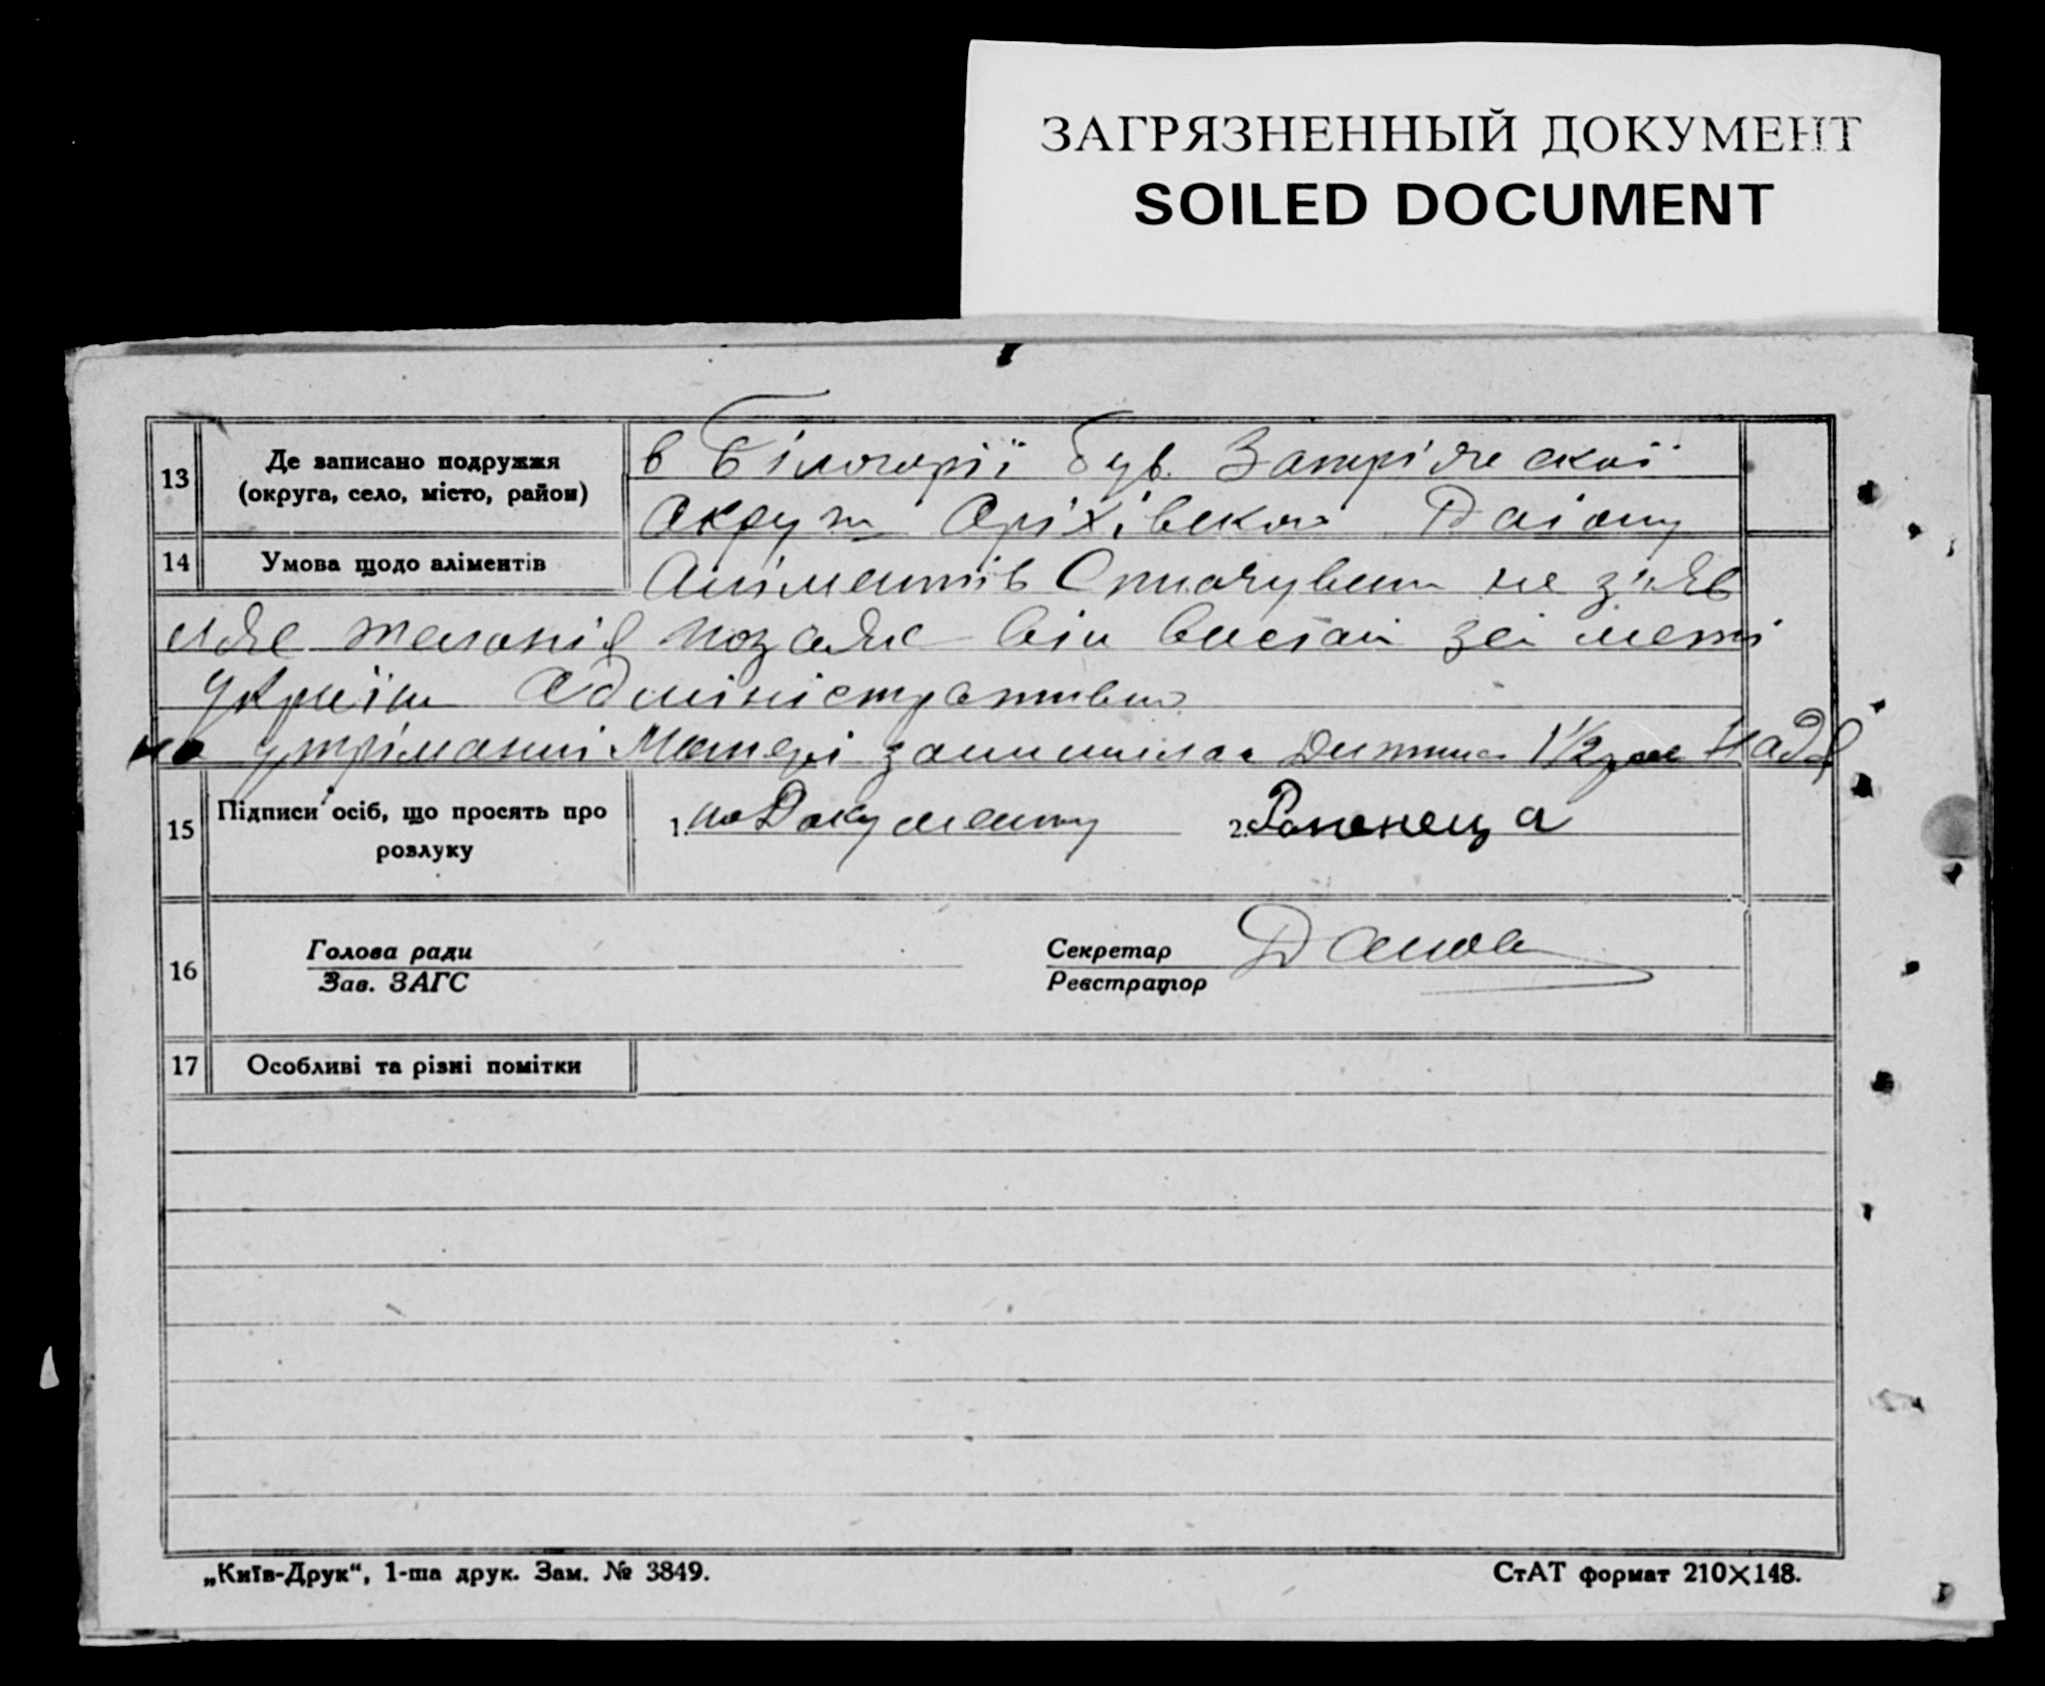 ЗАГРЯЗНЕННЫЙ ДОКУМЕНТ
SOILED DOCUMENT
13
Де записано подружжя
(округа, село, місто, район)
в Білогорії був.
Округи Оріхівского Району
14
Умова щодо аліментів
Аліментів Сплачувати не з'яв
ляе желанія позаяк він висlан за межі
України Адміністративно
на утріманні Матері залишилась Дитина 1½ рок Надя
15
Підписи осіб, що просять про
розлуку
1. по Документу
2.
16
Голова ради
Зав. ЗАГС
Секретар
Реєстратор
17
Особливі та різні помітки
„Київ-Друк“, 1-ша друк. Зам. № 3849.
СтАТ формат 210×148.